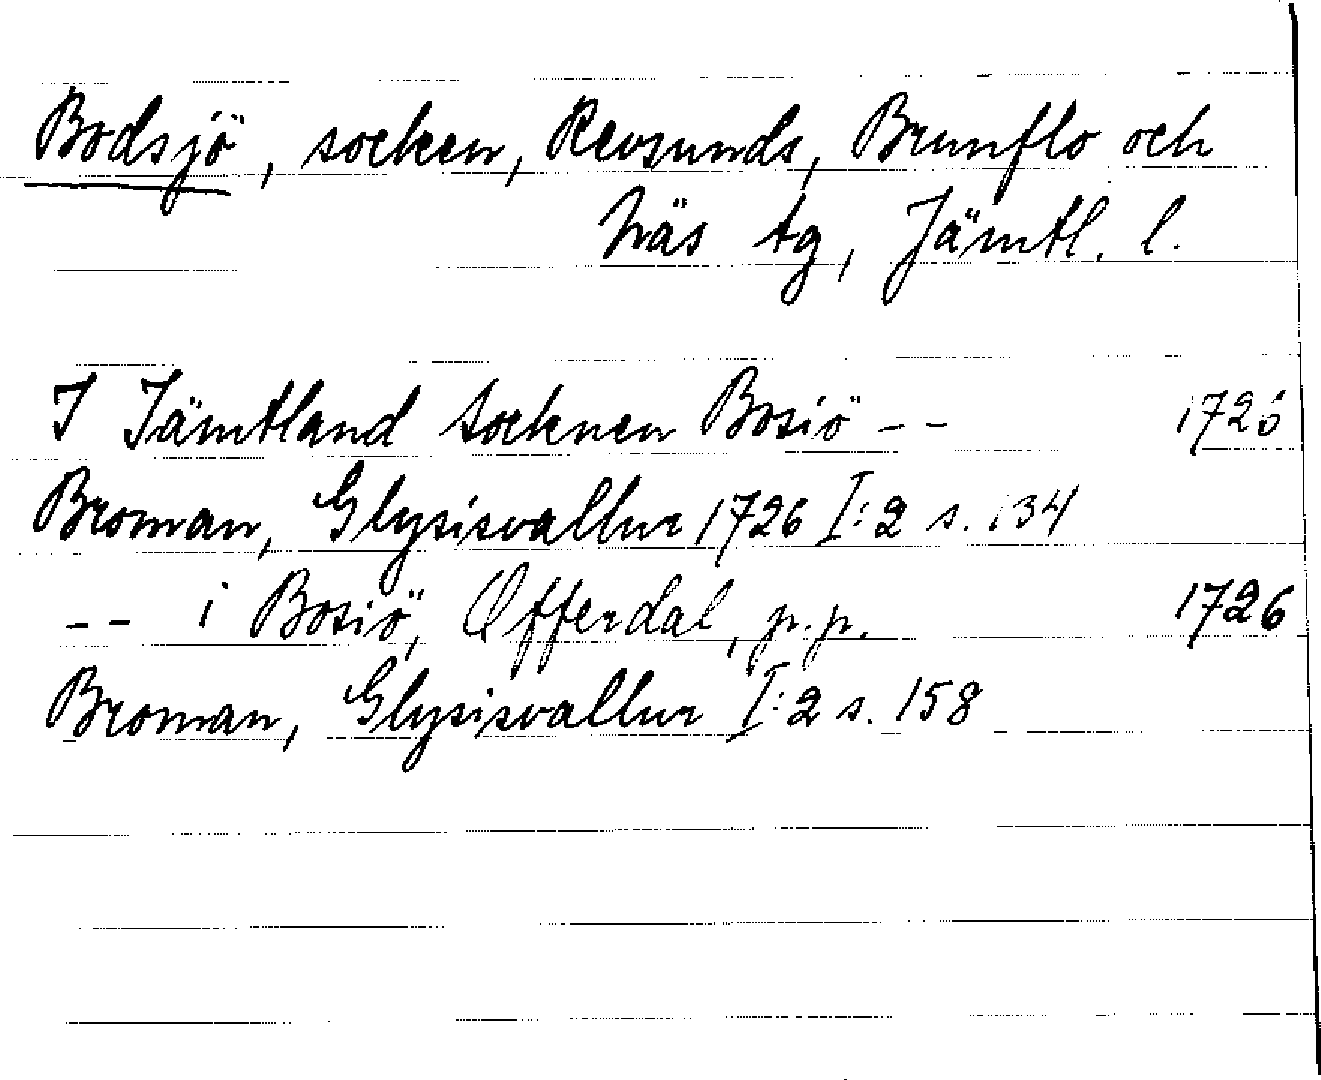 Bodsjö, socken, Revsunds, Brunflo och
Näs tg, Jämtl. l.
I Jämtland Socknen Bosiö -- 1726
Broman, Glysisvallur 1726 I:2 s. 134
-- i Bosiö, Offerdal, p.p. 1726
Broman, Glysisvallur I:2 s. 158